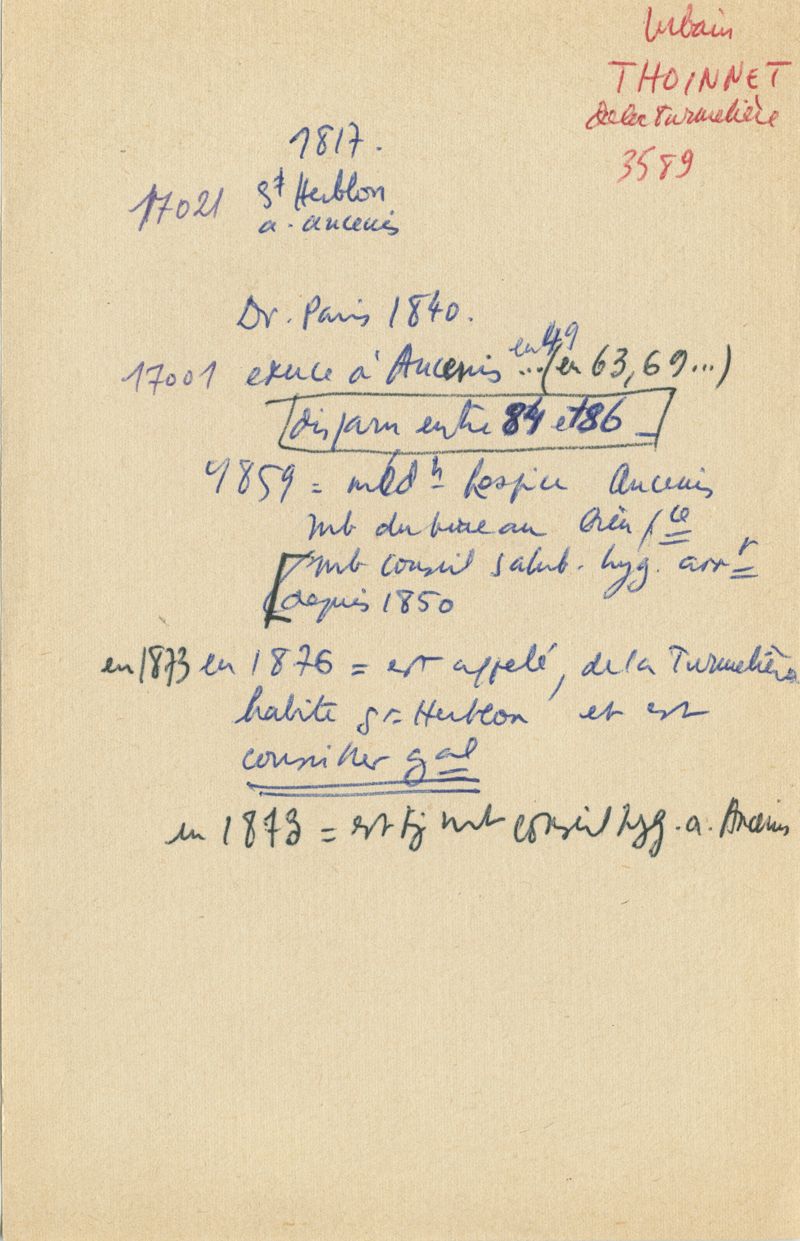 Urbain
THOINNET
de la Turmelière
3589
1817.
17021 St Herblon
a. ancenis
Dr. Paris 1840.
en 49
17001 exerce à Ancenis ...(en 63, 69...)
disparu entre 84 et 86
1859 = méd h hospice Ancenis
mb du bureau bienf ce
mb conseil salub. hyg. arr t
depuis 1850
en 1873 en 1876 = est appelé, de la Turmelière
habite St Herblon et est
conseiller gal
en 1873 = est tj mb conseil hyg. a. Ancenis